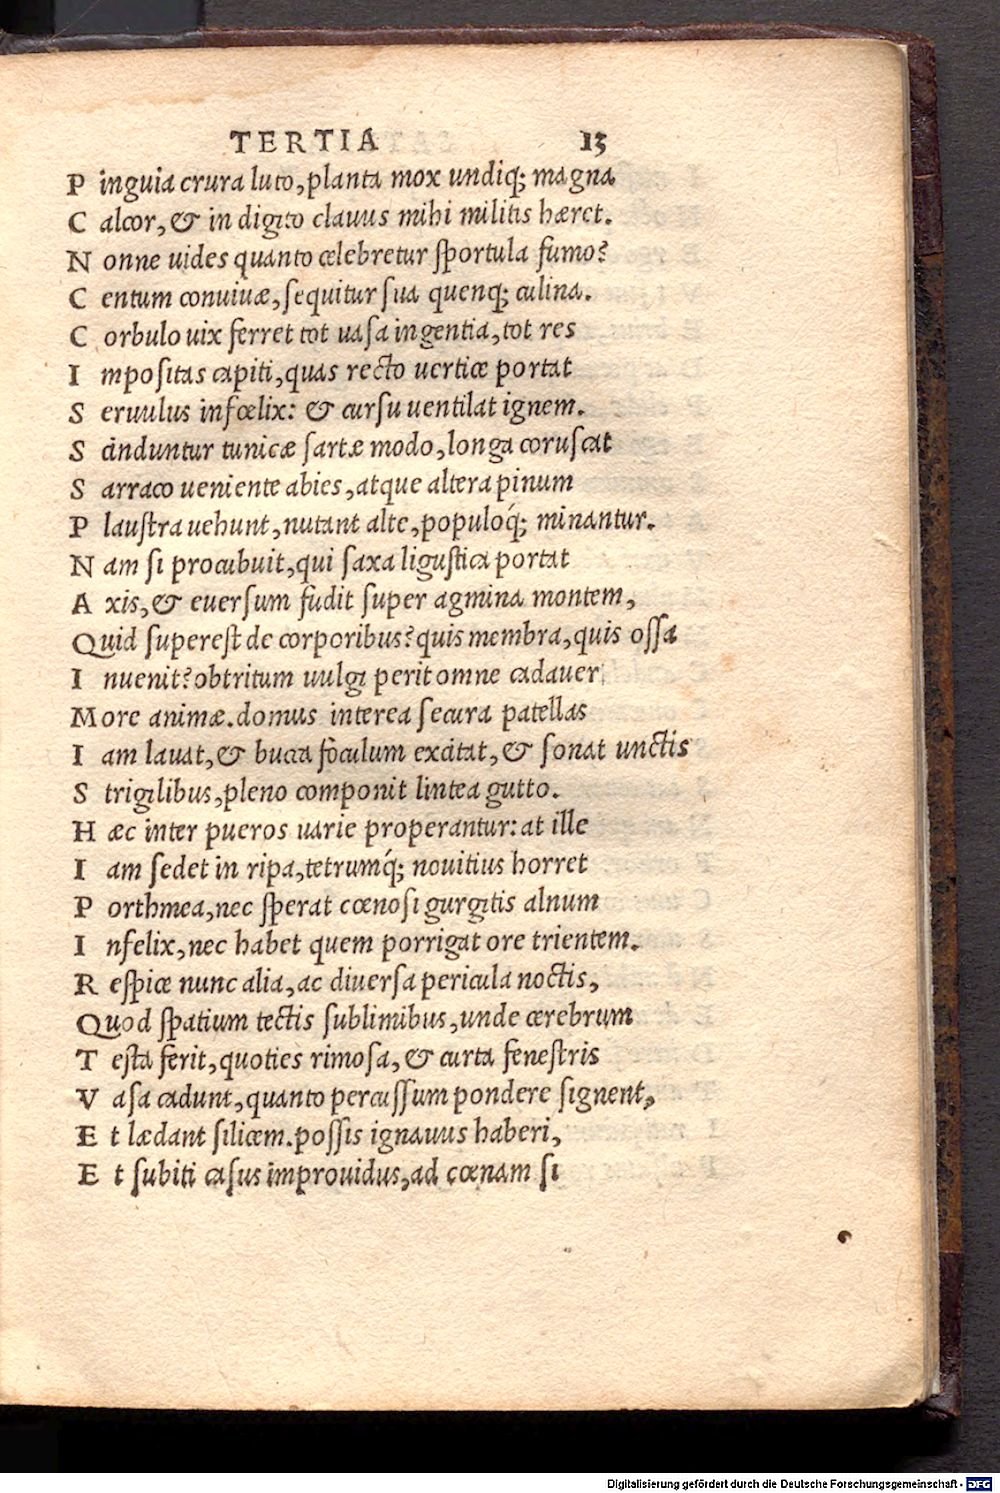 TERTIA 13
P inguia crura luto, planta mox undiq; magna
C alcor, & in digito clauus mihi militis hæret.
N onne uides quanto celebretur sportula fumo?
C entum conuiuæ, sequitur sua quenq; culina.
C orbulo uix ferret tot uasa ingentia, tot res
I mpositas capiti, quas recto uertice portat
S eruulus infœlix: & cursu uentilat ignem.
S cinduntur tunicæ sartæ modo, longa coruscat
S arraco ueniente abies, atque altera pinum
P laustra uehunt, nutant alte, populoq́; minantur.
N am si procubuit, qui saxa ligustica portat
A xis, & euersum fudit super agmina montem,
Quid superest de corporibus? quis membra, quis ossa
I nuenit? obtritum uulgi perit omne cadauer
More animæ. domus interea secura patellas
I am lauat, & bucca foculum excitat, & sonat unctis
S trigilibus, pleno componit lintea gutto.
H æc inter pueros uarie properantur: at ille
I am sedet in ripa, tetrumq́; nouitius horret
P orthmea, nec sperat cœnosi gurgitis alnum
I nfelix, nec habet quem porrigat ore trientem.
R espice nunc alia, ac diuersa pericula noctis,
Quod spatium tectis sublimibus, unde cerebrum
T esta ferit, quoties rimosa, & curta fenestris
V asa cadunt, quanto percussum pondere signent,
E t lædant silicem. possis ignauus haberi,
E t subiti casus improuidus, ad cœnam si
Digitalisierung gefördert durch die Deutsche Forschungsgemeinschaft - DFG